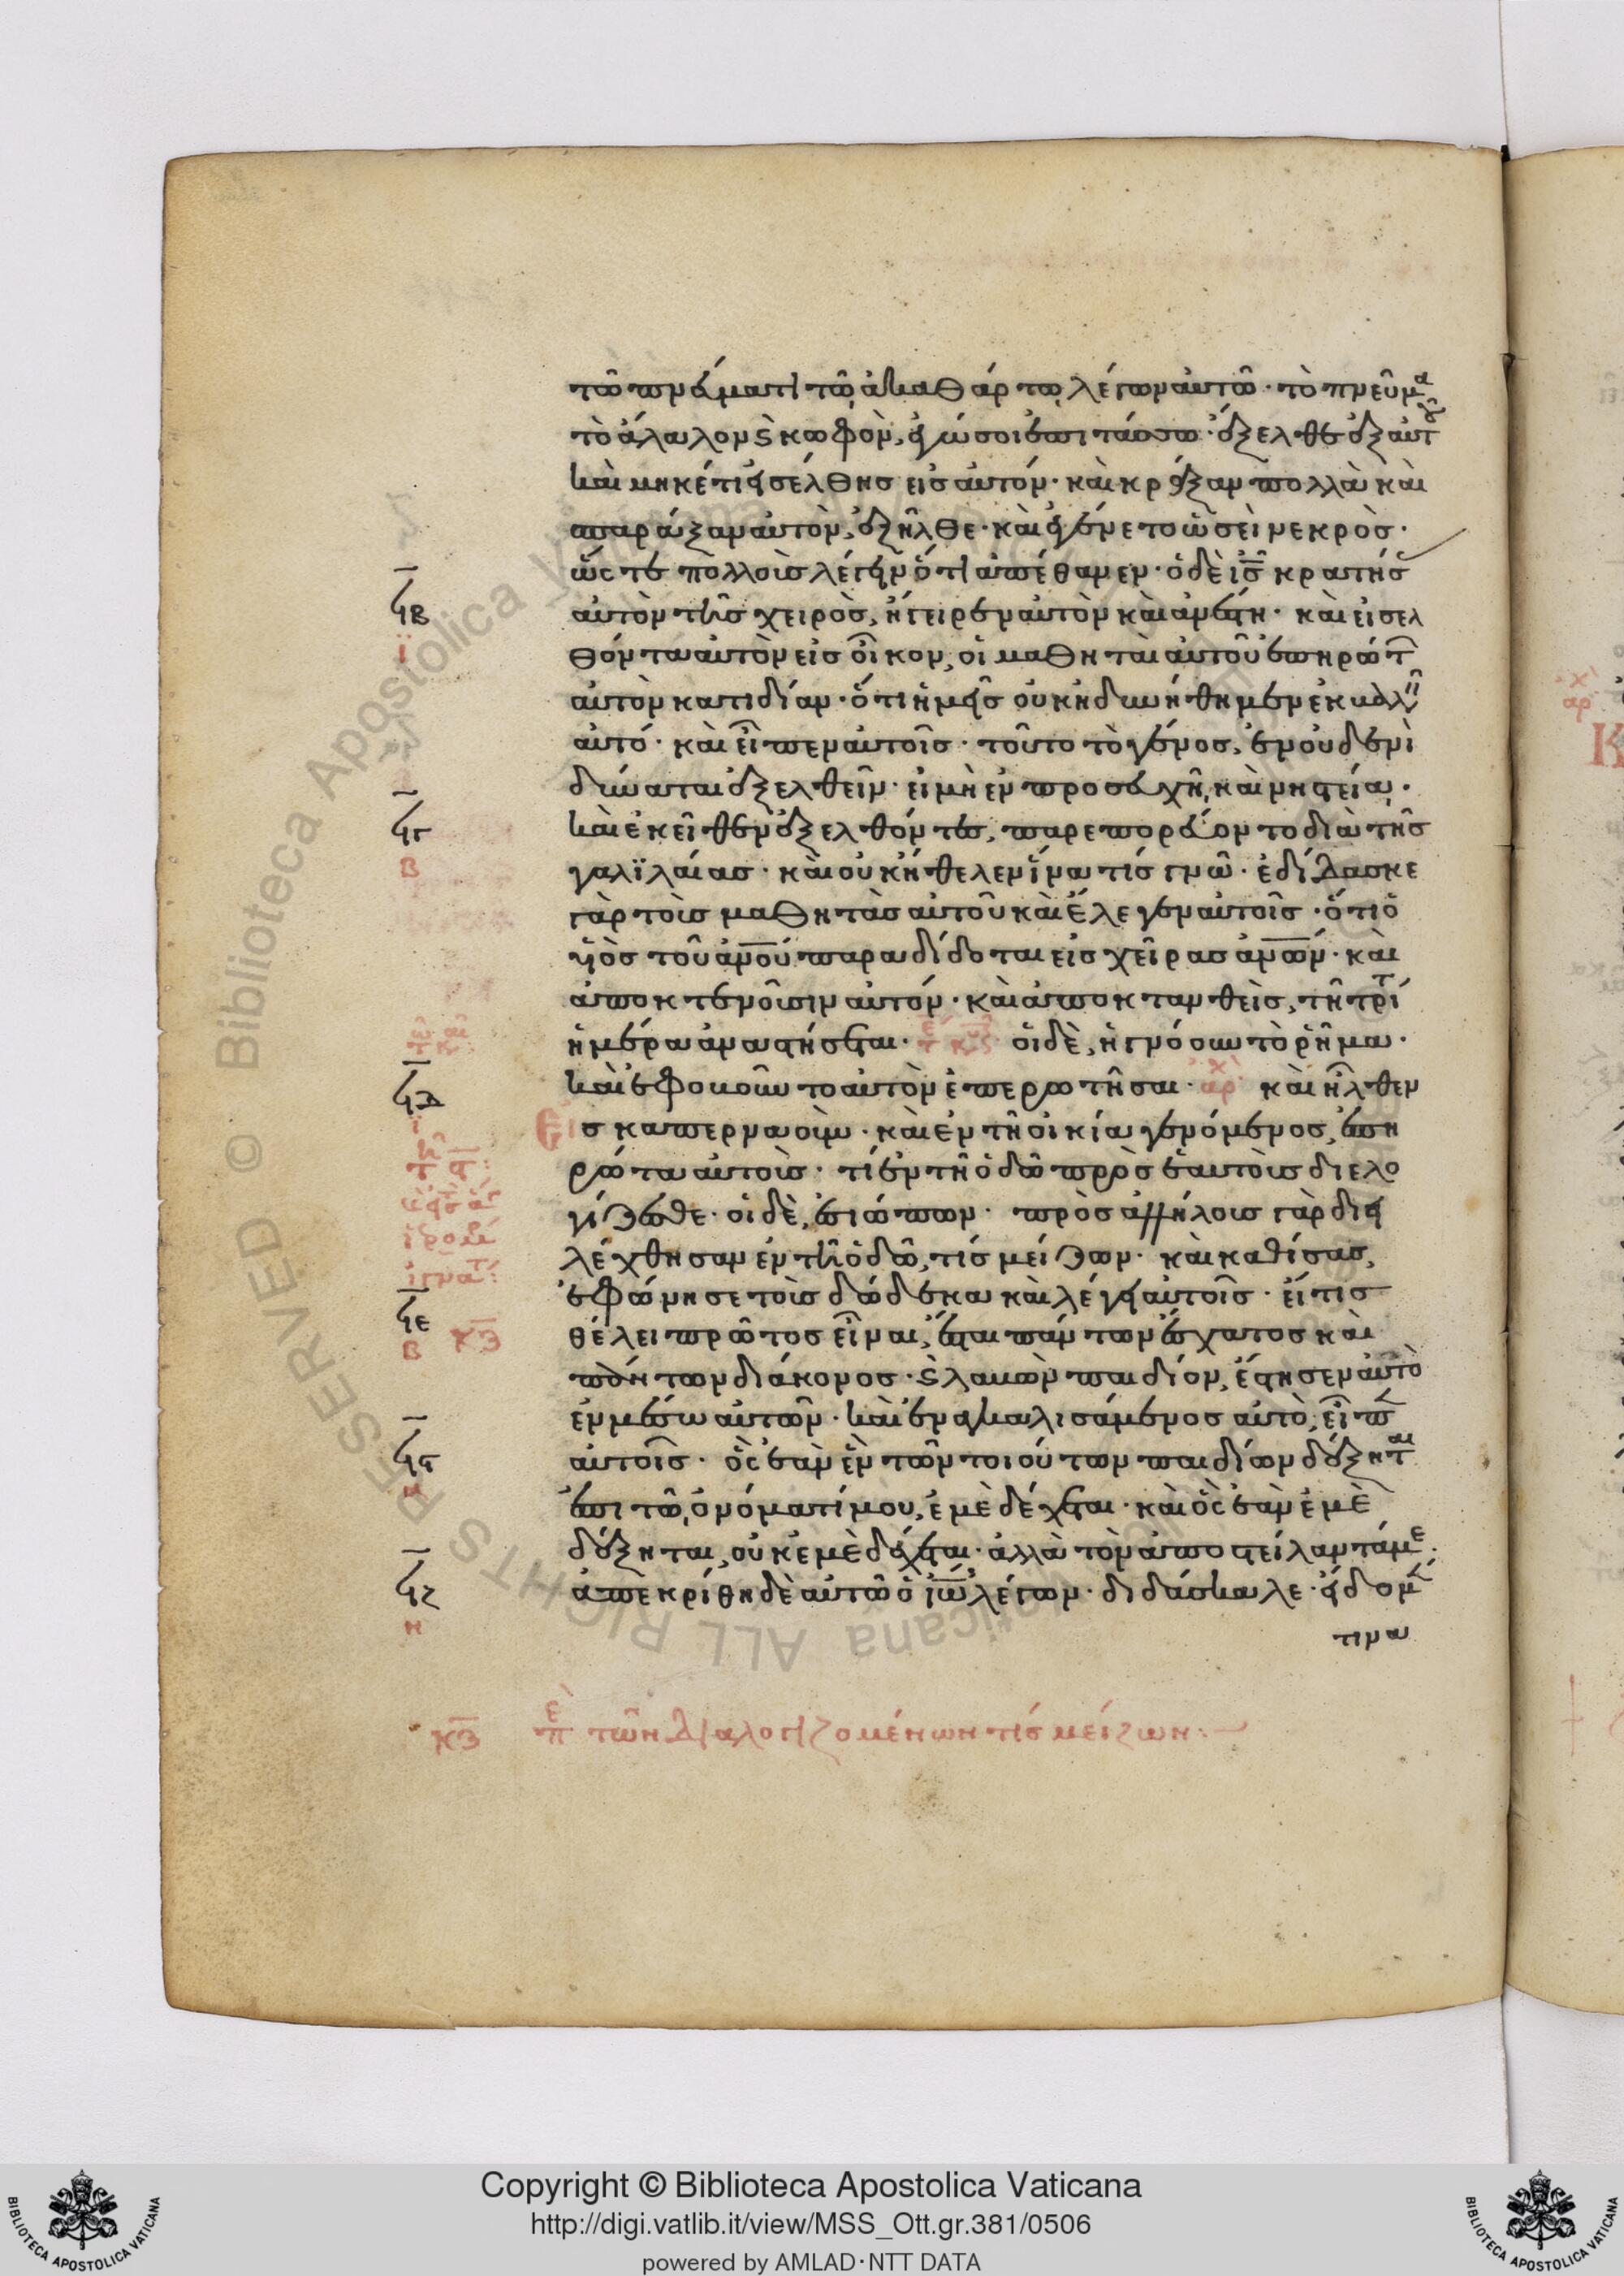 τῶ πνεύματι τῶ ἀκαθάρτω, λέγων αὐτῶ· τὸ πνεῦμα
τὸ ἄλαλον ϛ κωφὸν, ἐγώ σοι ἐπιτάσσω· ἔξελθε ἐξ αὐτοῦ
καὶ μηκέτι εἰσέλθης εἰς αὐτόν· καὶ κράξαν πολλὰ καὶ
σπαράξαν αὐτὸν, ἐξῆλθε· καὶ ἐγένετο ὡσεὶ νεκρὸς·
ὥστε πολλοὺς λέγειν ὅτι ἀπέθανεν· ὁ δὲ ις κρατήσ
αὐτὸν τῆς χειρὸς, ἤγειρεν αὐτὸν καὶ ἀνέστη· καὶ εἰσελ
θόντα αὐτὸν εἰς οἶκον, οἱ μαθηταὶ αὐτοῦ ἐπηρώτ
αὐτὸν κατιδίαν· ὅτι ἡμεῖς οὐκ ἠδυνήθημεν ἐκβαλεῖν
αὐτό· καὶ εἶπεν αὐτοῖς· τοῦτο τὸ γένος, ἐν οὐδενὶ
δύναται ἐξελθεῖν· εἰ μὴ ἐν προσευχῆ, καὶ νηστεία·
καὶ ἐκεῖθεν ἐξελθόντες, παρεπορεύοντο διὰ τῆς
γαλϊλαίας· καὶ οὐκ ἤθελεν ἵνα τίς γνῶ· ἐδίδασκε
γὰρ τοὺς μαθητὰς αὐτοῦ καὶ ἔλεγεν αὐτοῖς· ὅτι ὁ
υἱὸς τοῦ ἀνου παραδίδοται εἰς χεῖρας ἀνων· καὶ
ἀποκτενοῦσιν αὐτόν· καὶ ἀποκτανθεὶς, τῆ τρίτ
ἡμέρα ἀναστήσεται· οἱ δὲ, ἠγνόουν τὸ ῥῆμα·
καὶ ἐφοβοῦντο αὐτὸν ἐπερωτῆσαι· ἀρχ καὶ ἦλθεν
Εἰς καπερναοὺμ· καὶ ἐν τῆ οἰκία γενόμενος, ἐπη
ρώτα αὐτοὺς· τί ἐν τῆ ὁδῶ πρὸς ἑαυτοὺς διελο
γίζεσθε· οἱ δὲ, ἐσιώπων· πρὸς ἀλλήλους γὰρ διε
λέχθησαν ἐν τῆ ὁδῶ, τίς μείζων· καὶ καθίσας,
ἐφώνησε τοὺς δώδεκα καὶ λέγει αὐτοῖς· εἴ τις
θέλει πρῶτος εἶναι, ἔσται πάντων ἔσχατος καὶ
πάντων διάκονος· ϛ λαβὼν παιδίον, ἔστησεν αὐτὸ
ἐν μέσω αὐτῶν· καὶ ἐναγκαλισάμενος αὐτὸ, εἶπ
αὐτοῖς· ὃς ἐὰν ἓν τῶν τοιούτων παιδίων δέξηται
ἐπὶ τῶ ὀνόματί μου, ἐμὲ δέχεται· καὶ ὃς ἐὰν ἐμὲ
δέξηται, οὐκ ἐμὲ δέχεται· ἀλλὰ τὸν ἀποστείλαντά με·
ἀπεκρίθη δὲ αὐτῶ ὁ ιω λέγων· διδάσκαλε· εἴδομέν
τινα
κζ περὶ τῶν διαλογιζομένων τίς μείζων:
Copyright © Biblioteca Apostolica Vaticana
http://digi.vatlib.it/view/MSS_Ott.gr.381/0506
powered by AMLAD·NTT DATA